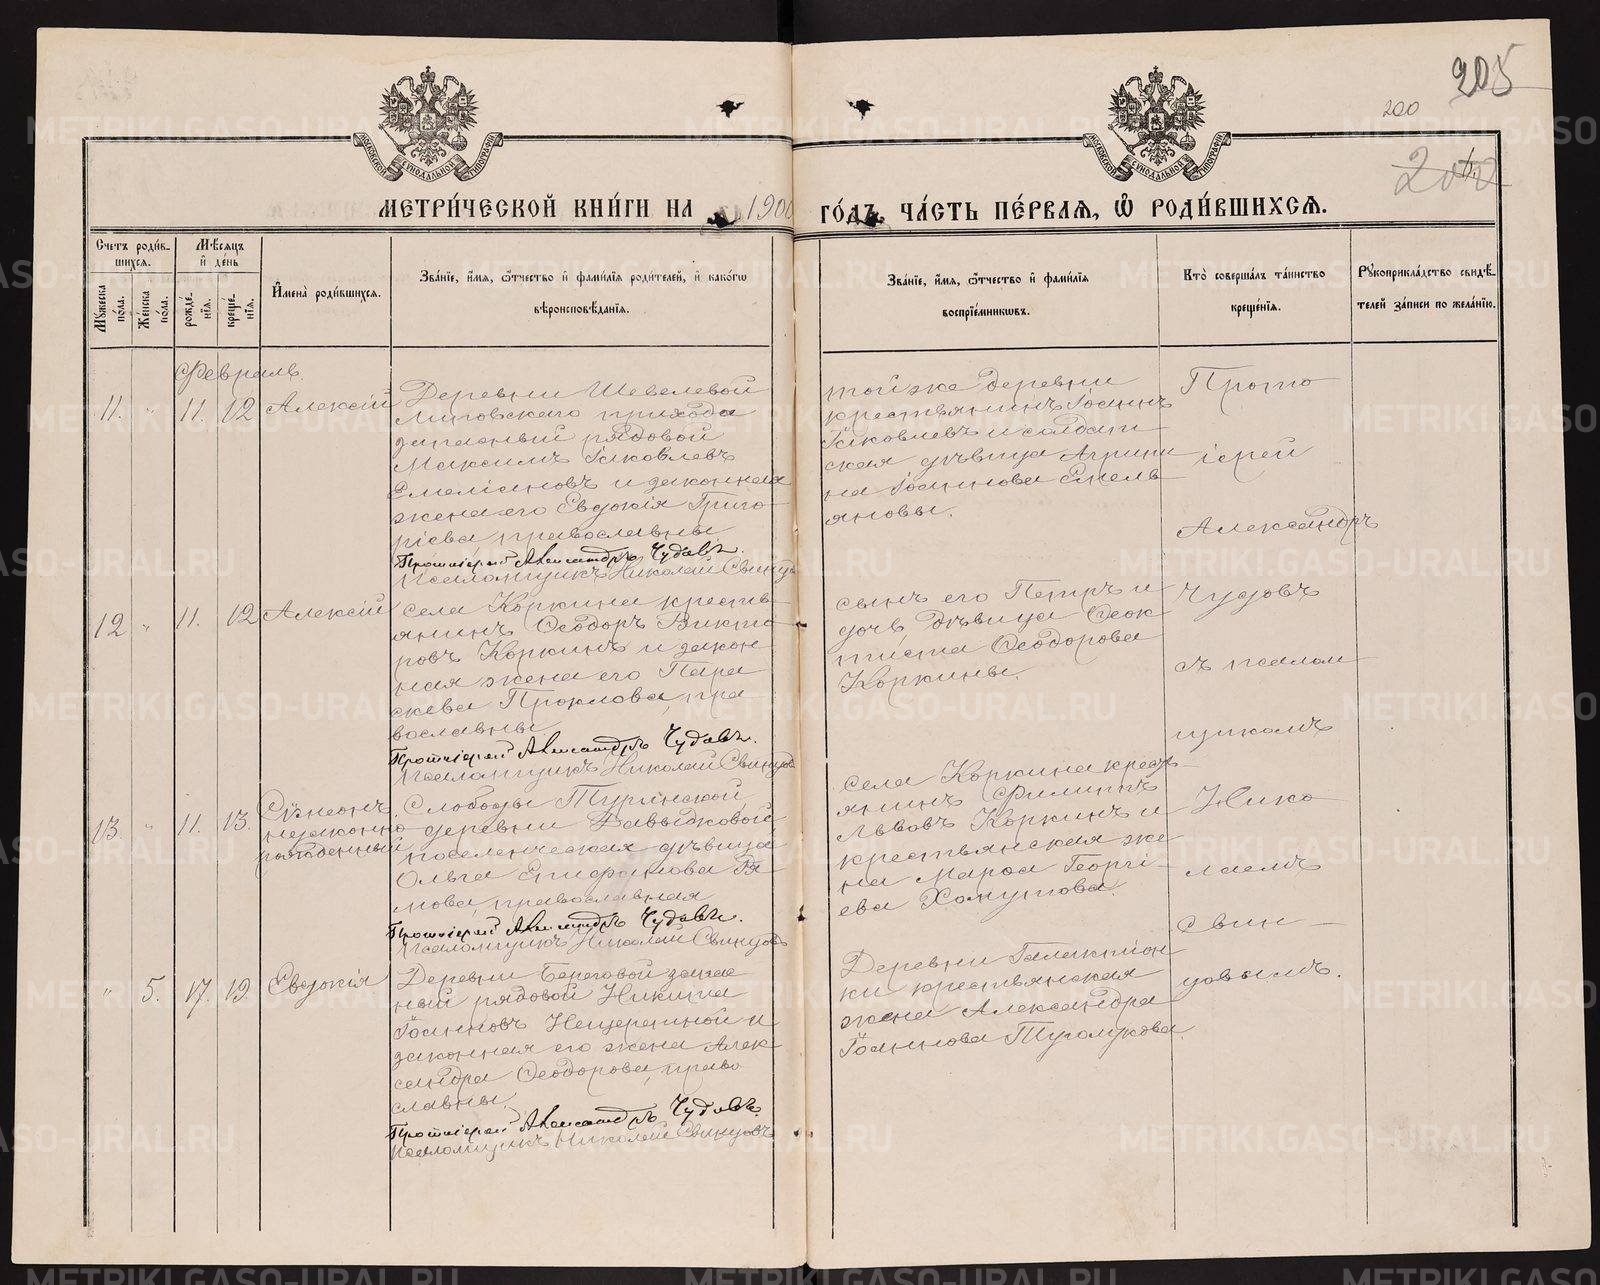 205
200
МОСКОВСКОЙ СѴНОДАЛЬНОЙ ТИПОГРАФІИ
МОСКОВСКОЙ СѴНОДАЛЬНОЙ ТИПОГРАФІИ
МЕТРИ́ЧЕСКОЙ КНИ́ГИ НА 1900 ГО́ДЪ, ЧА́СТЬ ПЕ́РВАЯ, Ѡ҆ РОДИ́ВШИХСЯ.
Счетъ роди́в-
шихся.
Му́жеска по́ла.
Же́нска по́ла.
Мѣ́сяцъ и҆ де́нь
рожде́нія.
креще́нія.
И҆мена̀ роди́вшихся.
Зва́ніе, и҆́мя, ѻ҆́тчество и҆ фами́лія роди́телей, и҆ како́гѡ
вѣроисповѣ́данія.
Зва́ніе, и҆́мя, ѻ҆́тчество и҆ фами́лія
воспріе́мникѡвъ.
Кто̀ соверша́лъ та́инство
креще́нія.
Рꙋкоприкла́дство свидѣ́-
телей за́писи по жела́нію.
Февраль
11. " 11. 12 Алексій
Деревни Шевелевой
Липовскаго прихода
запасный рядовой
Максимъ Іаковлевъ
Емеліановъ и законная
жена его Евдокія Григо
ріева православны
Протоіерей Александръ Чудовъ.
Псаломщикъ Николай Свинцовъ
той же деревни
крестьянинъ Іоаннъ
Іаковлевъ и солдат
ская дѣвица Агрипи
на Іоаннова Емель
яновы.
12 " 11. 12 Алексій
села Коркина кресть
янинъ Ѳеодоръ Викто
ровъ Коркинъ и закон
ная жена его Пара
скева Проклова, пра
вославны
Протоіерей Александръ Чудовъ.
Псаломщикъ Николай Свинцовъ
сынъ его Петръ и
дочь дѣвица Ѳеок
тиста Ѳеодорова
Коркины.
13. " 11. 13. Сѵмеонъ
незаконно
рожденный
Слободы Туринской,
деревни Давыдковой,
поселенческая дѣвица
Ольга Епифанова
мова, православная
Протоіерей Александръ Чудовъ.
Псаломщикъ Николай Свинцовъ
села Коркина кресть
янинъ Филиппъ
Львовъ Коркинъ и
крестьянская же
на Марѳа Георгі
ева Хомутова.
" 5. 17. 19. Евдокія
Деревни Береговой запас
ный рядовой Никита
Іоанновъ и
законная его жена Алек
сандра Ѳеодорова, право
славны.
Протоіерей Александръ Чудовъ.
Псаломщикъ Николай Свинцовъ
Деревни Галактіон
ки крестьянская
жена Александра
Іоаннова
Прото
іерей
Александръ
Чудовъ
съ псалом
щикомъ
Нико
лаемъ
Свин
цовымъ.
METRIKI.GASO-URAL.RU